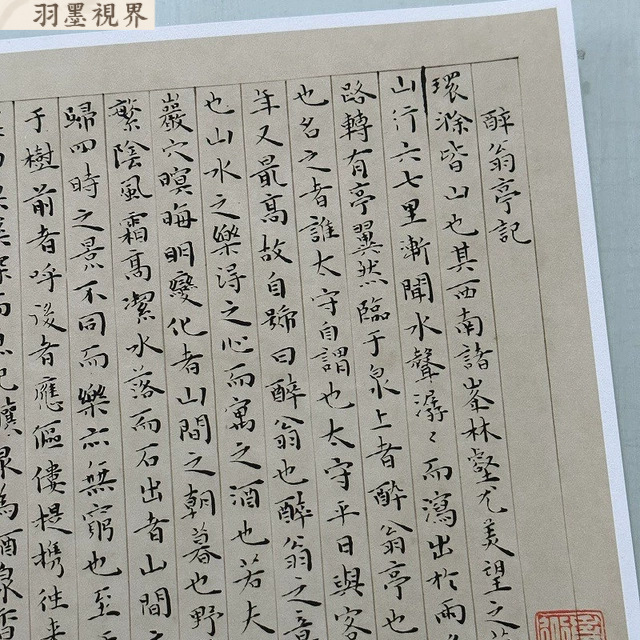 羽墨視界
醉翁亭記
環滁皆山也其西南諸峯林壑尤美望之
山行六七里漸聞水聲潺〻而瀉出於兩
路轉有亭翼然臨于泉上者醉翁亭也
也名之者誰太守自謂也太守平日與客
年又最高故自號曰醉翁也醉翁之意
也山水之樂得之心而寓之酒也若夫
巖穴暝晦明變化者山間之朝暮也野
繁陰風霜高潔水落而石出者山間之
歸四時之景不同而樂亦無窮也至
于樹前者呼後者應傴僂提携往来